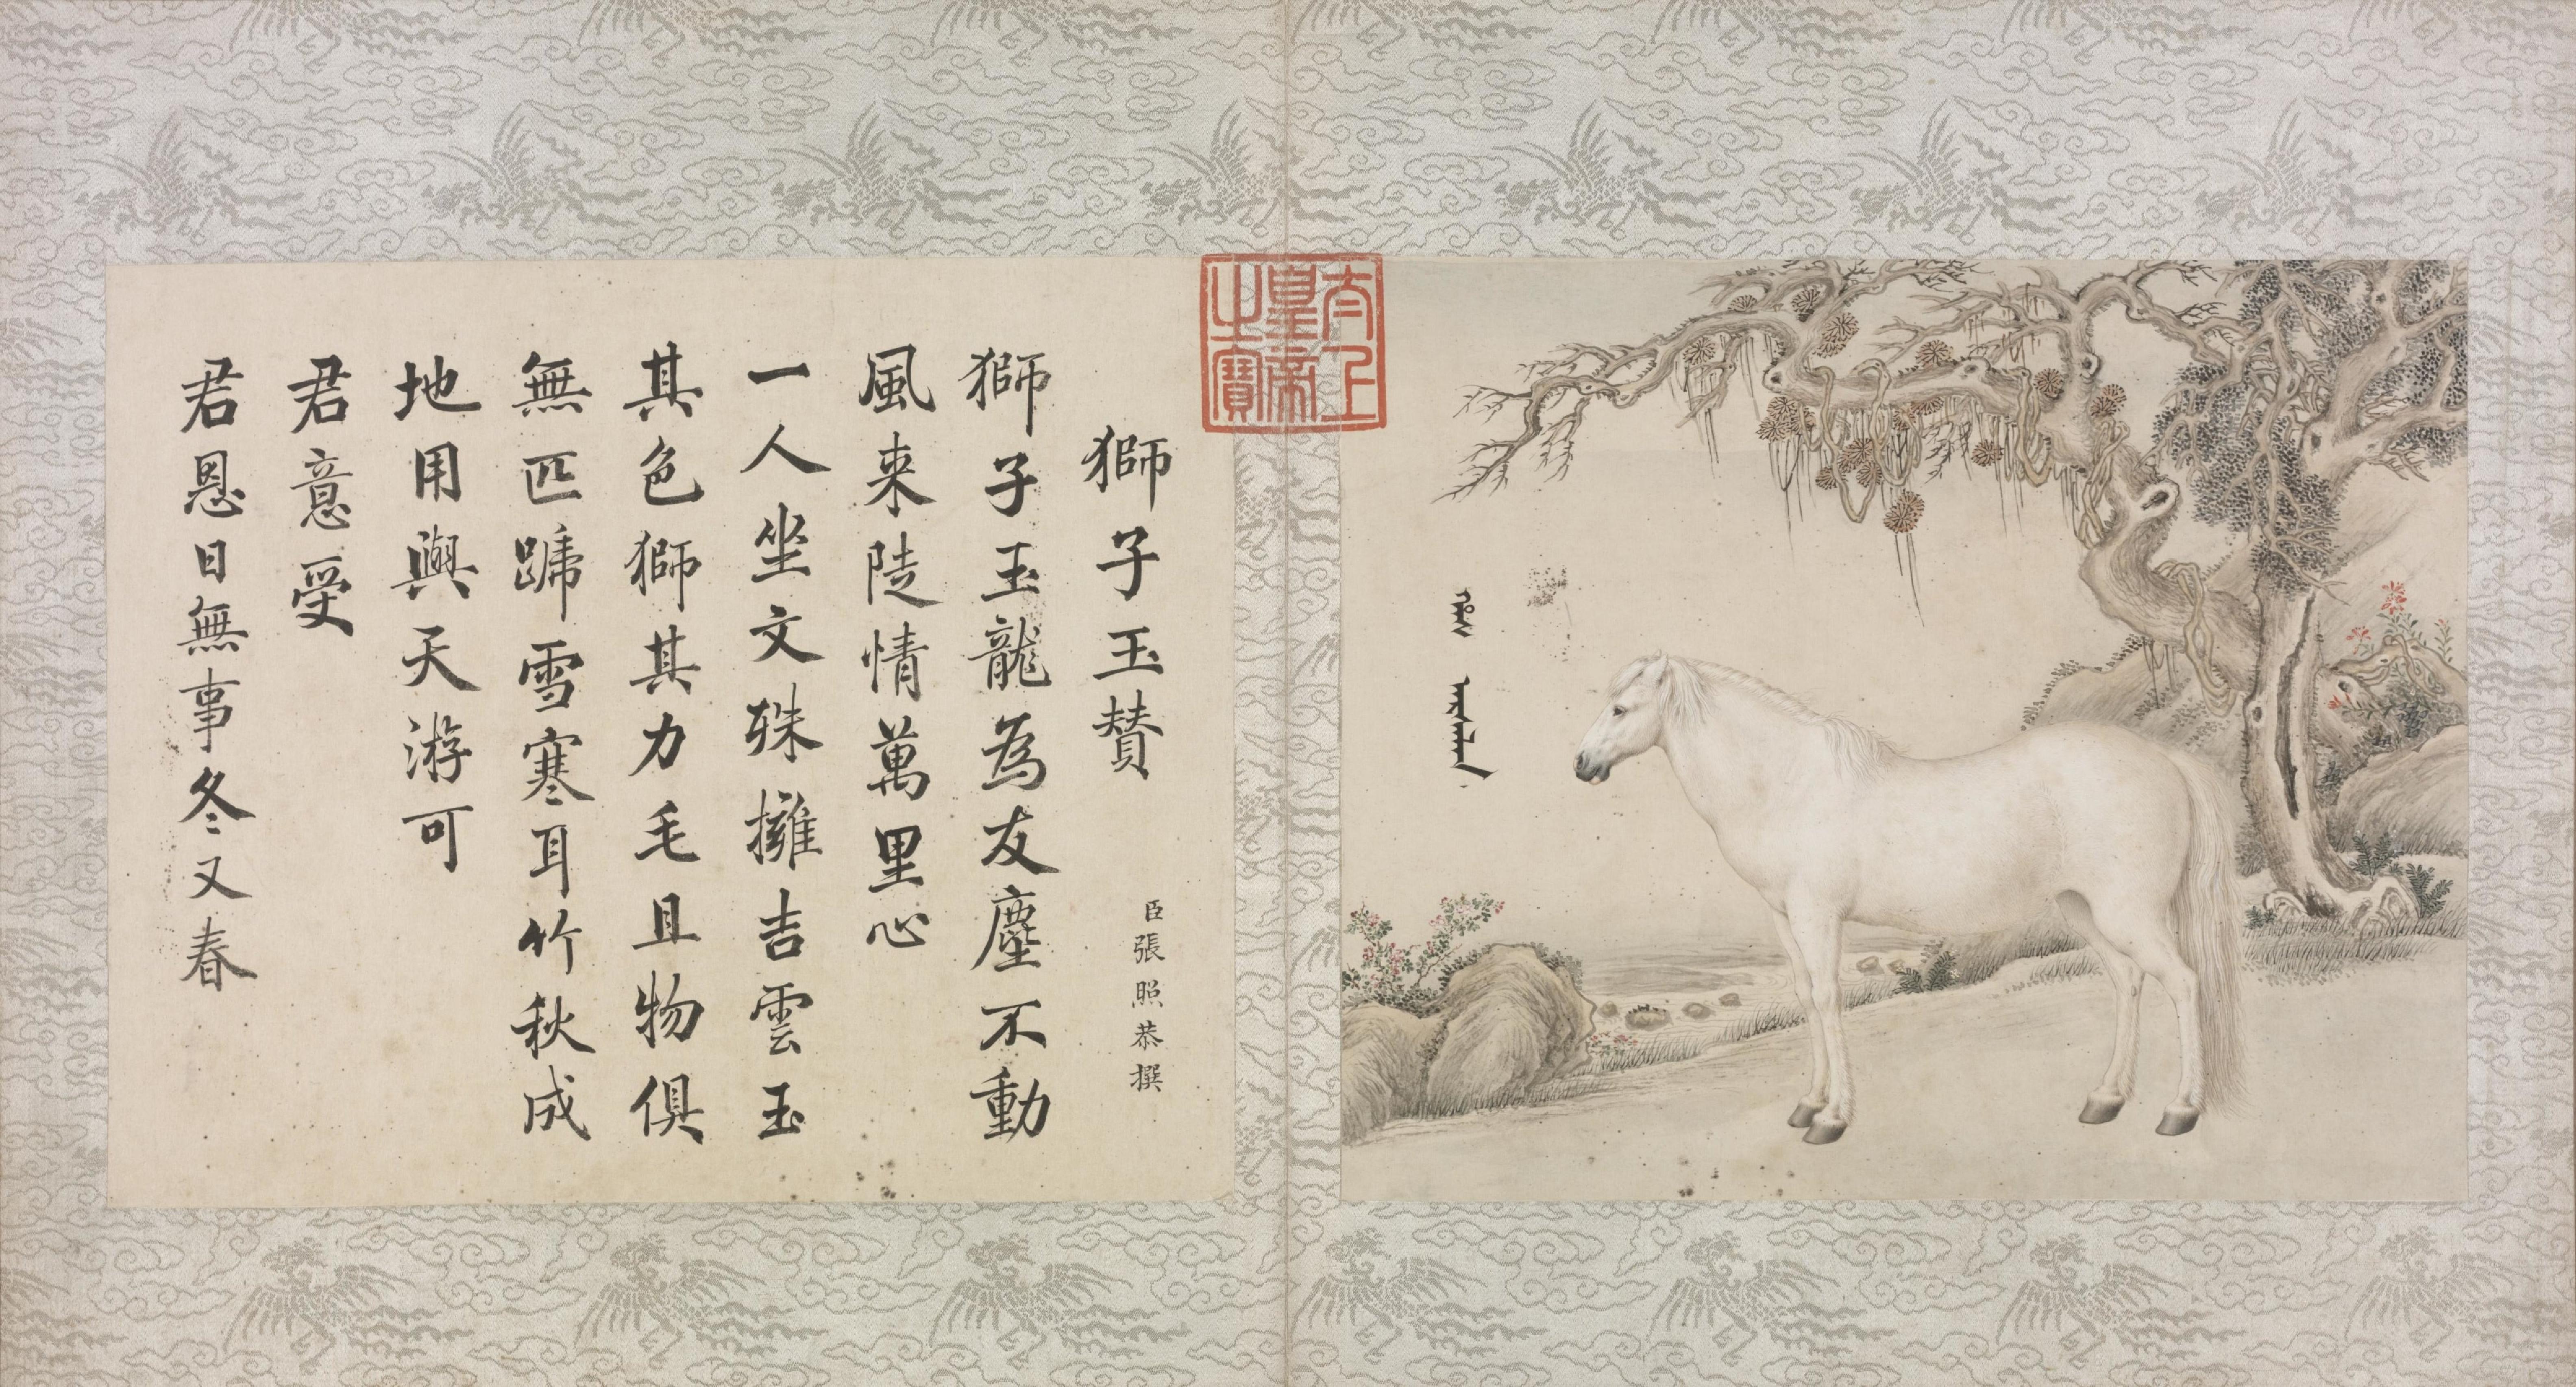 太上
皇帝
之寶
獅子玉賛
臣張照恭撰
獅子玉龍為友塵不動
風来陡情萬里心
一人坐文殊擁吉雲玉
其色獅其力毛且物俱
無匹蹏雪寒耳竹秋成
地用與天游可
君意受
君恩日無事冬又春